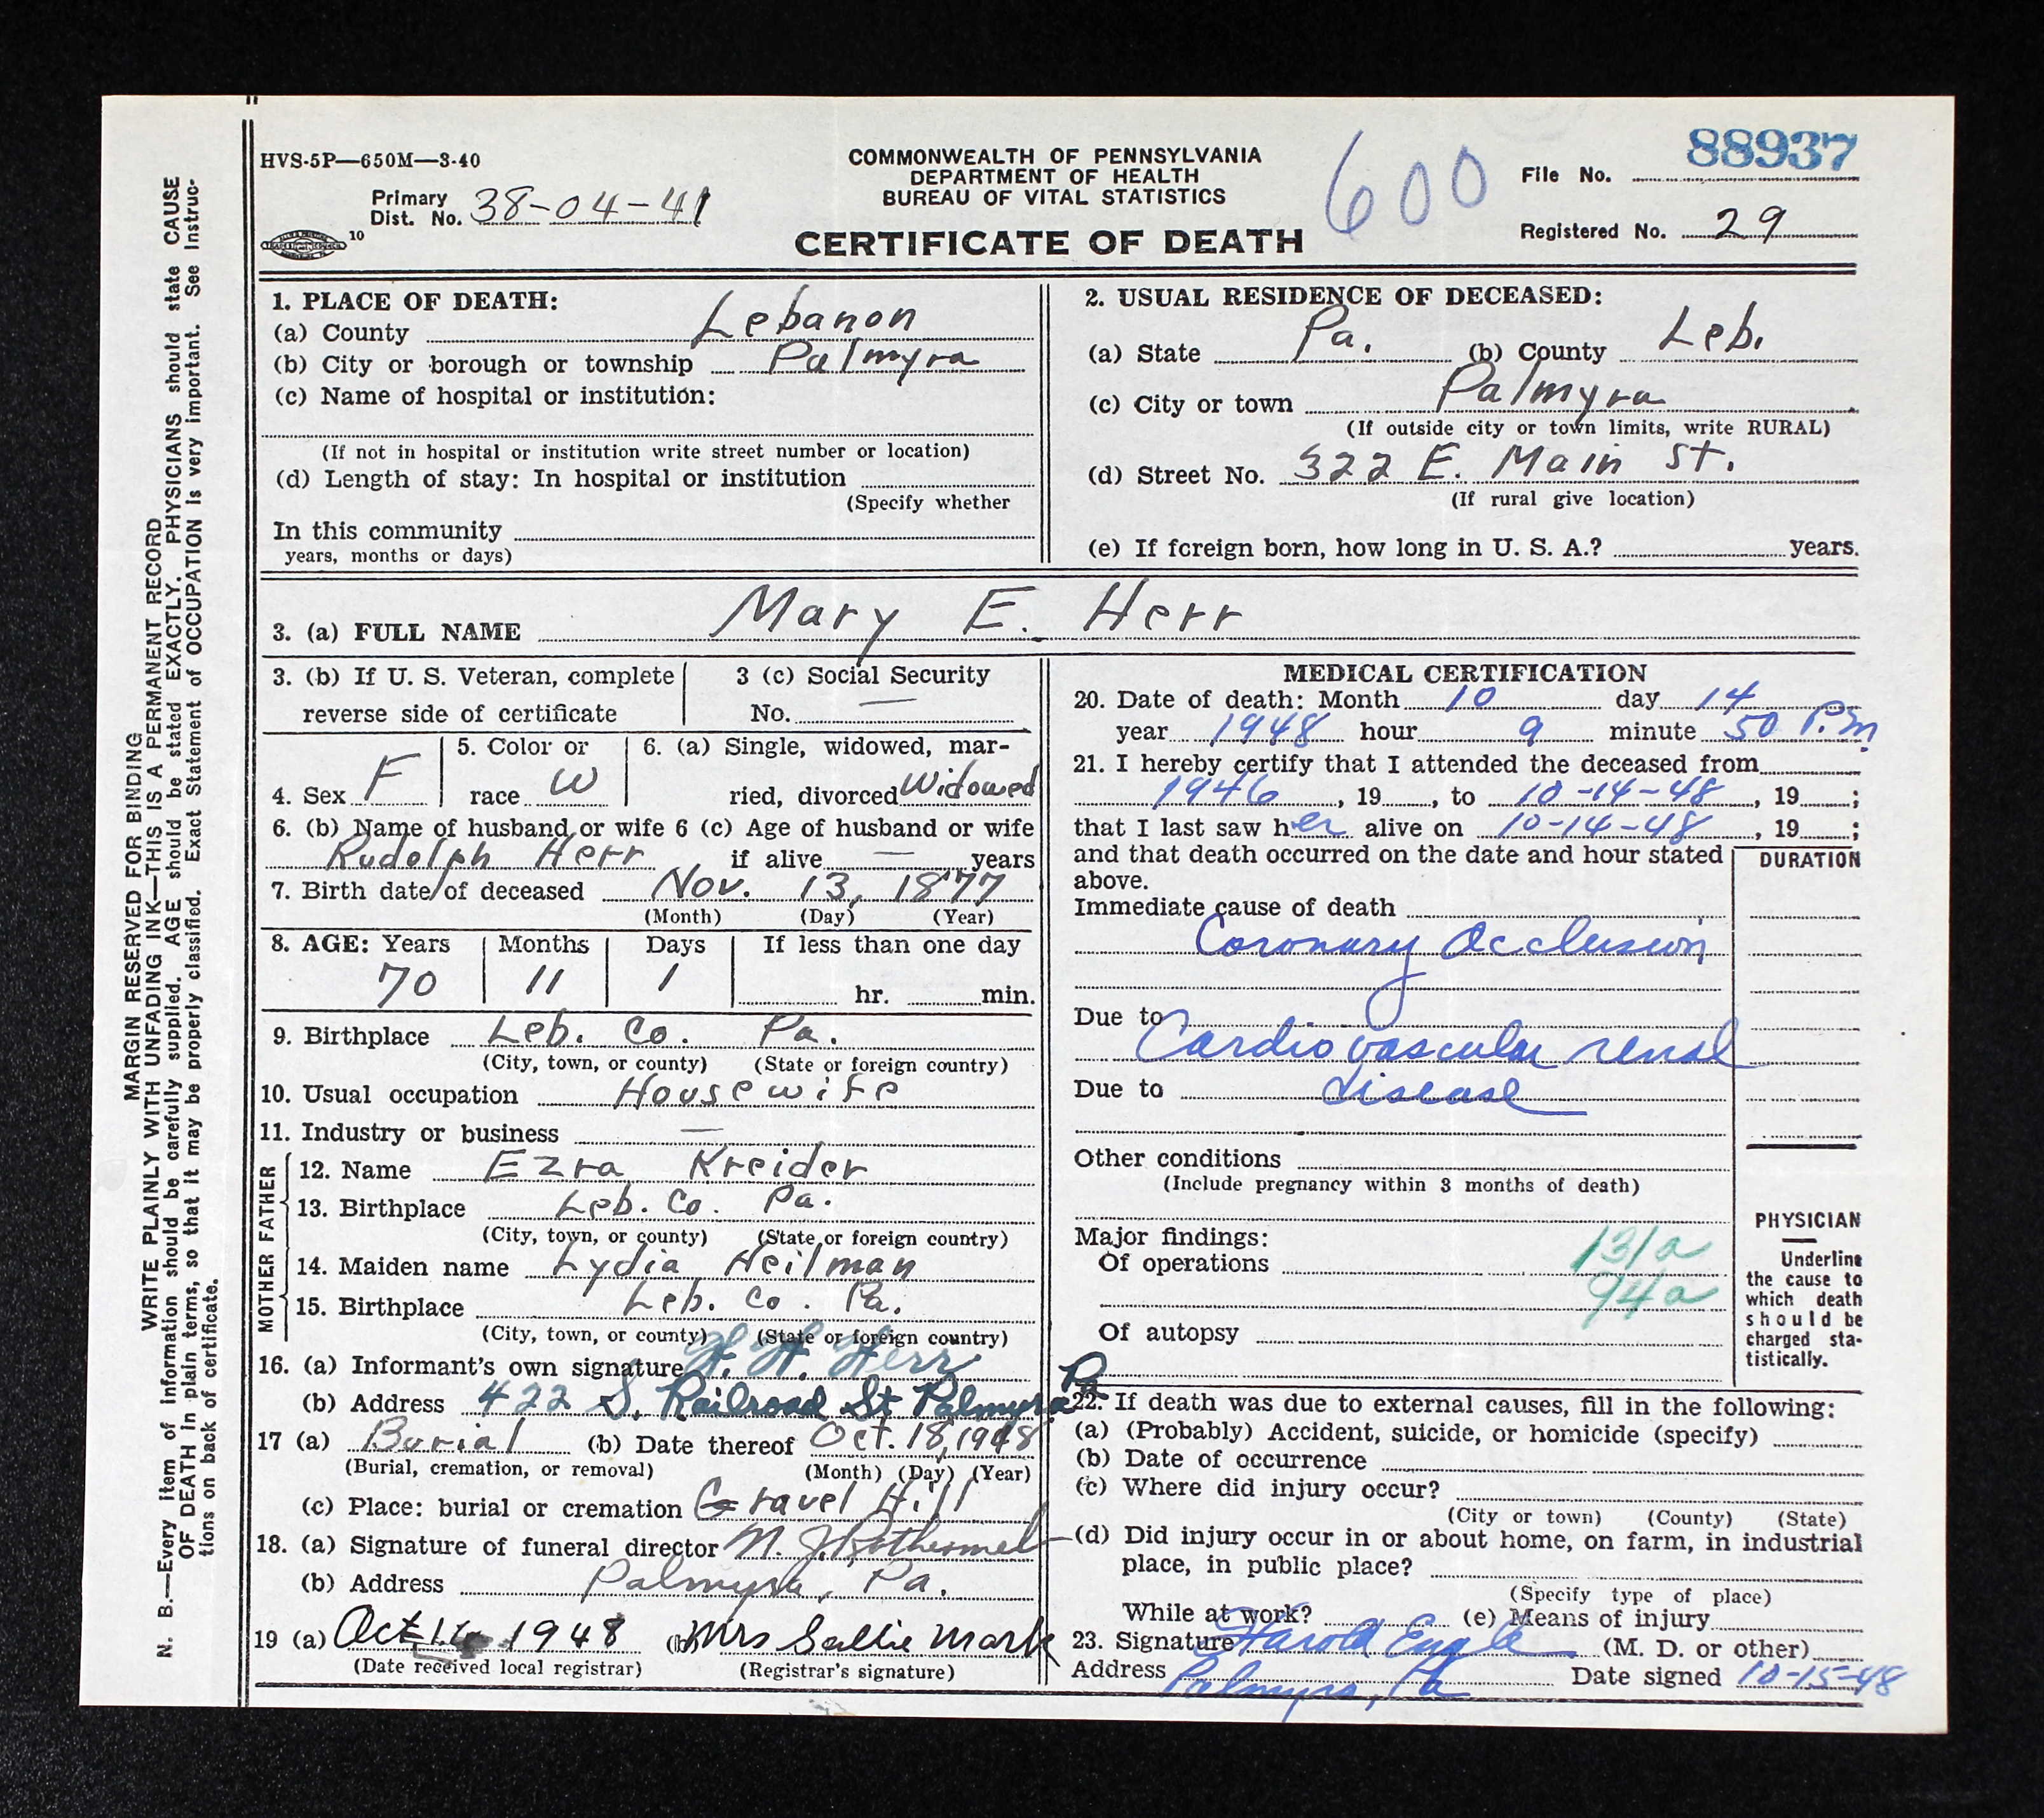 HVS-5P—650M—3-40
COMMONWEALTH OF PENNSYLVANIA
DEPARTMENT OF HEALTH
BUREAU OF VITAL STATISTICS
CERTIFICATE OF DEATH
600
88937
File No.
Primary
Dist. No. 38-04-41
10
Registered No. 29
1. PLACE OF DEATH:
(a) County Lebanon
(b) City or borough or township Palmyra
(c) Name of hospital or institution:
(If not in hospital or institution write street number or location)
(d) Length of stay: In hospital or institution
(Specify whether
In this community
years, months or days)
2. USUAL RESIDENCE OF DECEASED:
(a) State Pa. (b) County Leb.
(c) City or town Palmyra
(If outside city or town limits, write RURAL)
(d) Street No. 322 E. Main St.
(If rural give location)
(e) If foreign born, how long in U. S. A.? years.
3. (a) FULL NAME Mary E. Herr
3. (b) If U. S. Veteran, complete
reverse side of certificate
3 (c) Social Security
No. —
4. Sex F
5. Color or
race W
6. (a) Single, widowed, mar-
ried, divorced Widowed
6. (b) Name of husband or wife 6 (c) Age of husband or wife
Rudolph Herr if alive — years
7. Birth date of deceased Nov. 13, 1877
(Month) (Day) (Year)
8. AGE: Years Months Days If less than one day
70 11 1 hr. min.
9. Birthplace Leb. Co. Pa.
(City, town, or county) (State or foreign country)
10. Usual occupation Housewife
11. Industry or business —
FATHER
12. Name Ezra Kreider
13. Birthplace Leb. Co. Pa.
(City, town, or county) (State or foreign country)
MOTHER
14. Maiden name Lydia Heilman
15. Birthplace Leb. Co. Pa.
(City, town, or county) (State or foreign country)
16. (a) Informant's own signature H. H. Herr
(b) Address 422 S. Railroad St Palmyra Pa
17 (a) Burial (b) Date thereof Oct. 18, 1948
(Burial, cremation, or removal) (Month) (Day) (Year)
(c) Place: burial or cremation Gravel Hill
18. (a) Signature of funeral director M. J. Rothermel
(b) Address Palmyra, Pa.
19 (a) Oct 1948 (b) Mrs Sallie Mark
(Date received local registrar) (Registrar's signature)
MEDICAL CERTIFICATION
20. Date of death: Month 10 day 14
year 1948 hour 9 minute 50 P.M.
21. I hereby certify that I attended the deceased from
1946, 19 , to 10-14-48, 19 ;
that I last saw her alive on 10-14-48, 19 ;
and that death occurred on the date and hour stated
above.
DURATION
Immediate cause of death
Coronary Occlusion
Due to
Cardiovascular renal
Due to disease
Other conditions
(Include pregnancy within 3 months of death)
Major findings:
Of operations 131a
94a
Of autopsy
PHYSICIAN
Underline
the cause to
which death
should be
charged sta-
tistically.
22. If death was due to external causes, fill in the following:
(a) (Probably) Accident, suicide, or homicide (specify)
(b) Date of occurrence
(c) Where did injury occur?
(City or town) (County) (State)
(d) Did injury occur in or about home, on farm, in industrial
place, in public place?
(Specify type of place)
While at work? (e) Means of injury
23. Signature Harold Engle (M. D. or other)
Address Palmyra, Pa Date signed 10-15-48
MARGIN RESERVED FOR BINDING
WRITE PLAINLY WITH UNFADING INK—THIS IS A PERMANENT RECORD
N. B.—Every item of information should be carefully supplied. AGE should be stated EXACTLY. PHYSICIANS should state CAUSE
OF DEATH in plain terms, so that it may be properly classified. Exact Statement of OCCUPATION is very important. See Instruc-
tions on back of certificate.